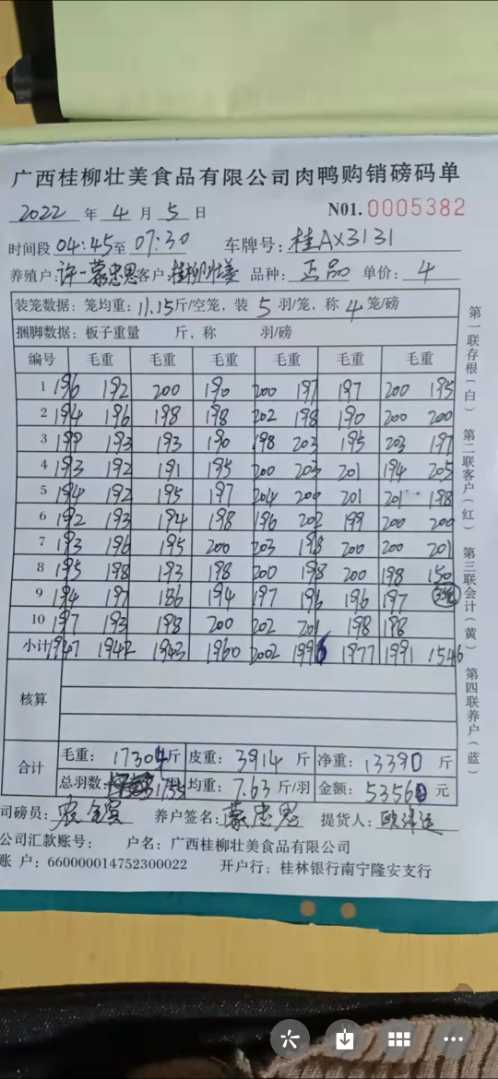 广西桂柳壮美食品有限公司肉鸭购销磅码单
2022 年 4 月 5 日 N01.0005382
时间段 04:45 至 07:30 车牌号: 桂AX3131
养殖户: 许一蒙忠恩 客户: 桂柳壮美 品种: 正品 单价: 4
装笼数据: 笼均重: 11.15 斤/空笼, 装 5 羽/笼, 称 4 笼/磅
捆脚数据: 板子重量 斤, 称 羽/磅
编号 毛重 毛重 毛重 毛重 毛重 毛重
1 196 192 200 190 200 197 197 200 195
2 194 196 198 198 202 198 190 200 200
3 199 193 193 190 198 203 195 203 197
4 193 192 191 195 200 203 201 194 205
5 194 192 195 197 204 200 201 201 198
6 192 193 194 198 196 202 199 200 200
7 193 196 195 200 203 198 200 200 201
8 195 198 193 198 200 198 200 198 150
9 194 197 186 194 197 196 196 197
10 197 193 198 200 202 201 198 198
小计 1947 1942 1943 1960 2002 1996 1977 1991 1546
核算
合计
毛重: 17304 斤 皮重: 3914 斤 净重: 13390 斤
总羽数 1755 均重: 7.63 斤/羽 金额: 53560 元
司磅员: 养户签名: 蒙忠恩 提货人:
公司汇款账号: 户名: 广西桂柳壮美食品有限公司
账 户: 660000014752300022 开户行: 桂林银行南宁隆安支行
第一联存根(白) 第二联客户(红) 第三联会计(黄) 第四联养户(蓝)